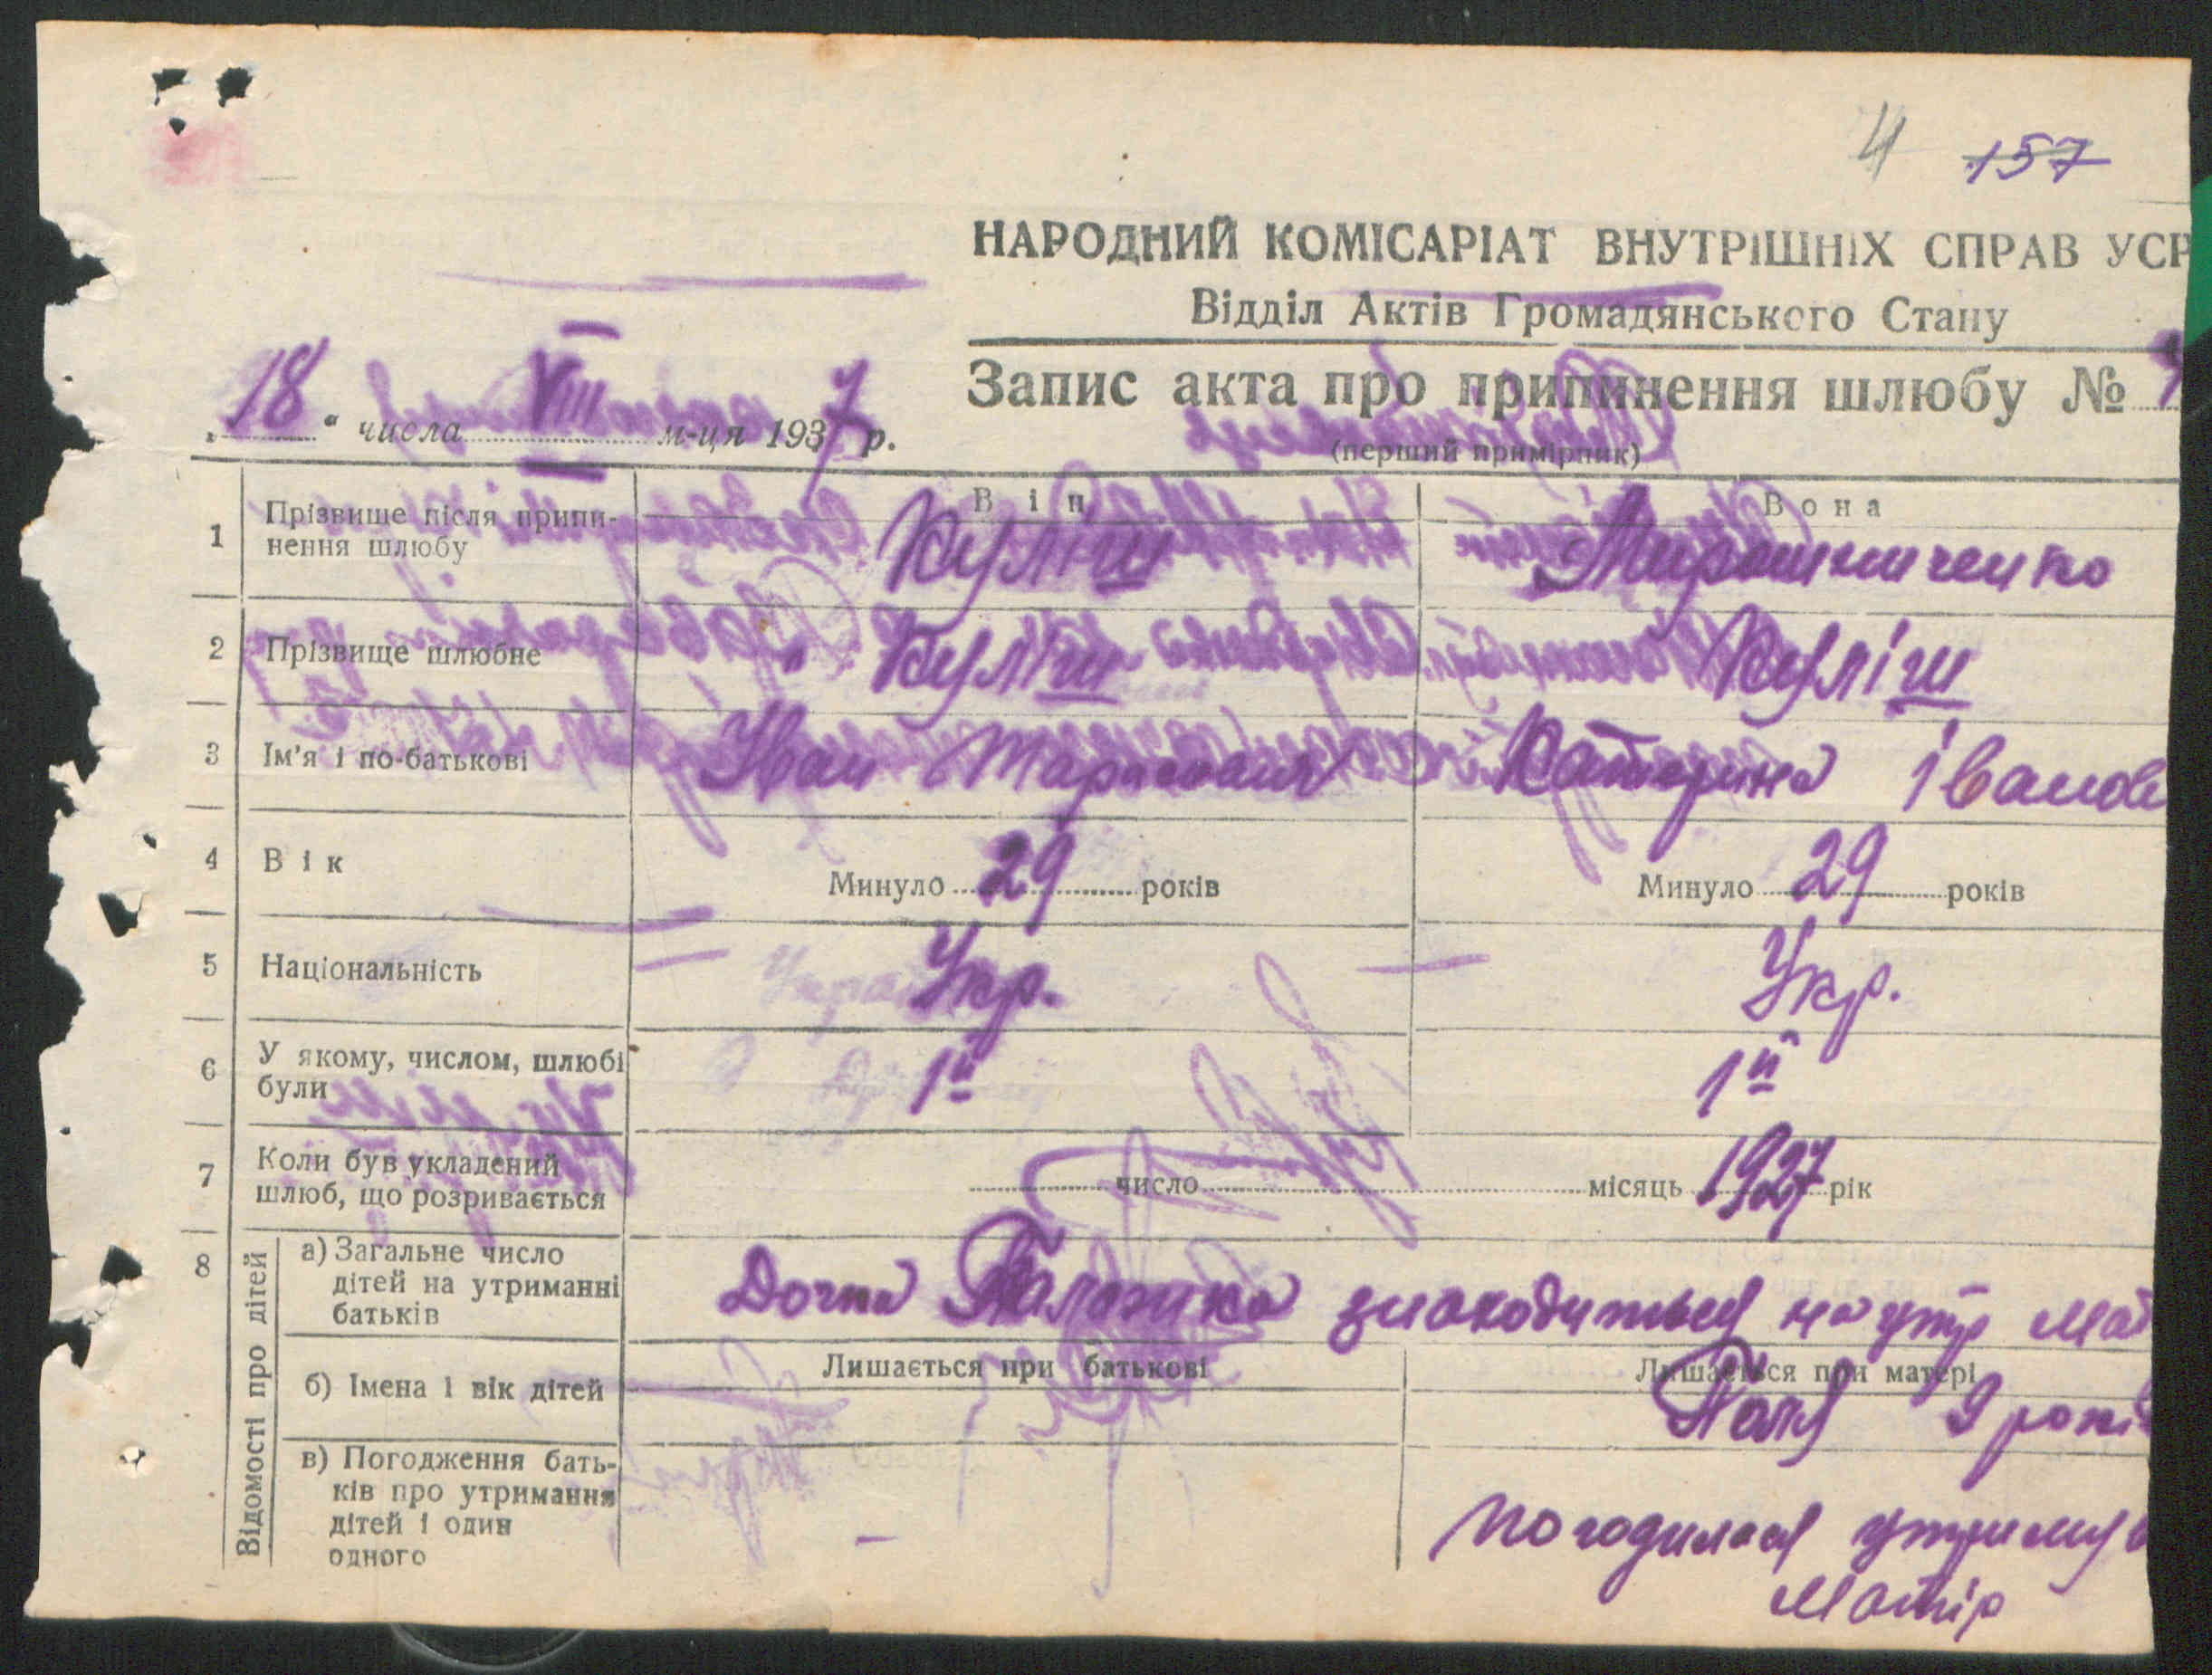 4 157
НАРОДНИЙ КОМІСАРІАТ ВНУТРІШНІХ СПРАВ УСР
Відділ Актів Громадянського Стану
Запис акта про припинення шлюбу №
„18“ числа VIII м-ця 1937 р.
(перший примірник)
Він Вона
1 Прізвище після припи-
нення шлюбу Куліш Мирошниченко
2 Прізвище шлюбне Куліш Куліш
3 Ім'я і по-батькові Іван Катерина Іванов
4 Вік Минуло 29 років Минуло 29 років
5 Національність Укр. Укр.
6 У якому, числом, шлюбі
були 1й 1й
7 Коли був укладений
шлюб, що розривається число місяць 1927 рік
8 Відомості про дітей
а) Загальне число
дітей на утриманні
батьків Дочка знаходиться на утр мат
Лишається при батькові Лишається при матері
б) Імена і вік дітей 9 років
в) Погодження бать-
ків про утримання
дітей і один
одного – погодилася утримув
Матір